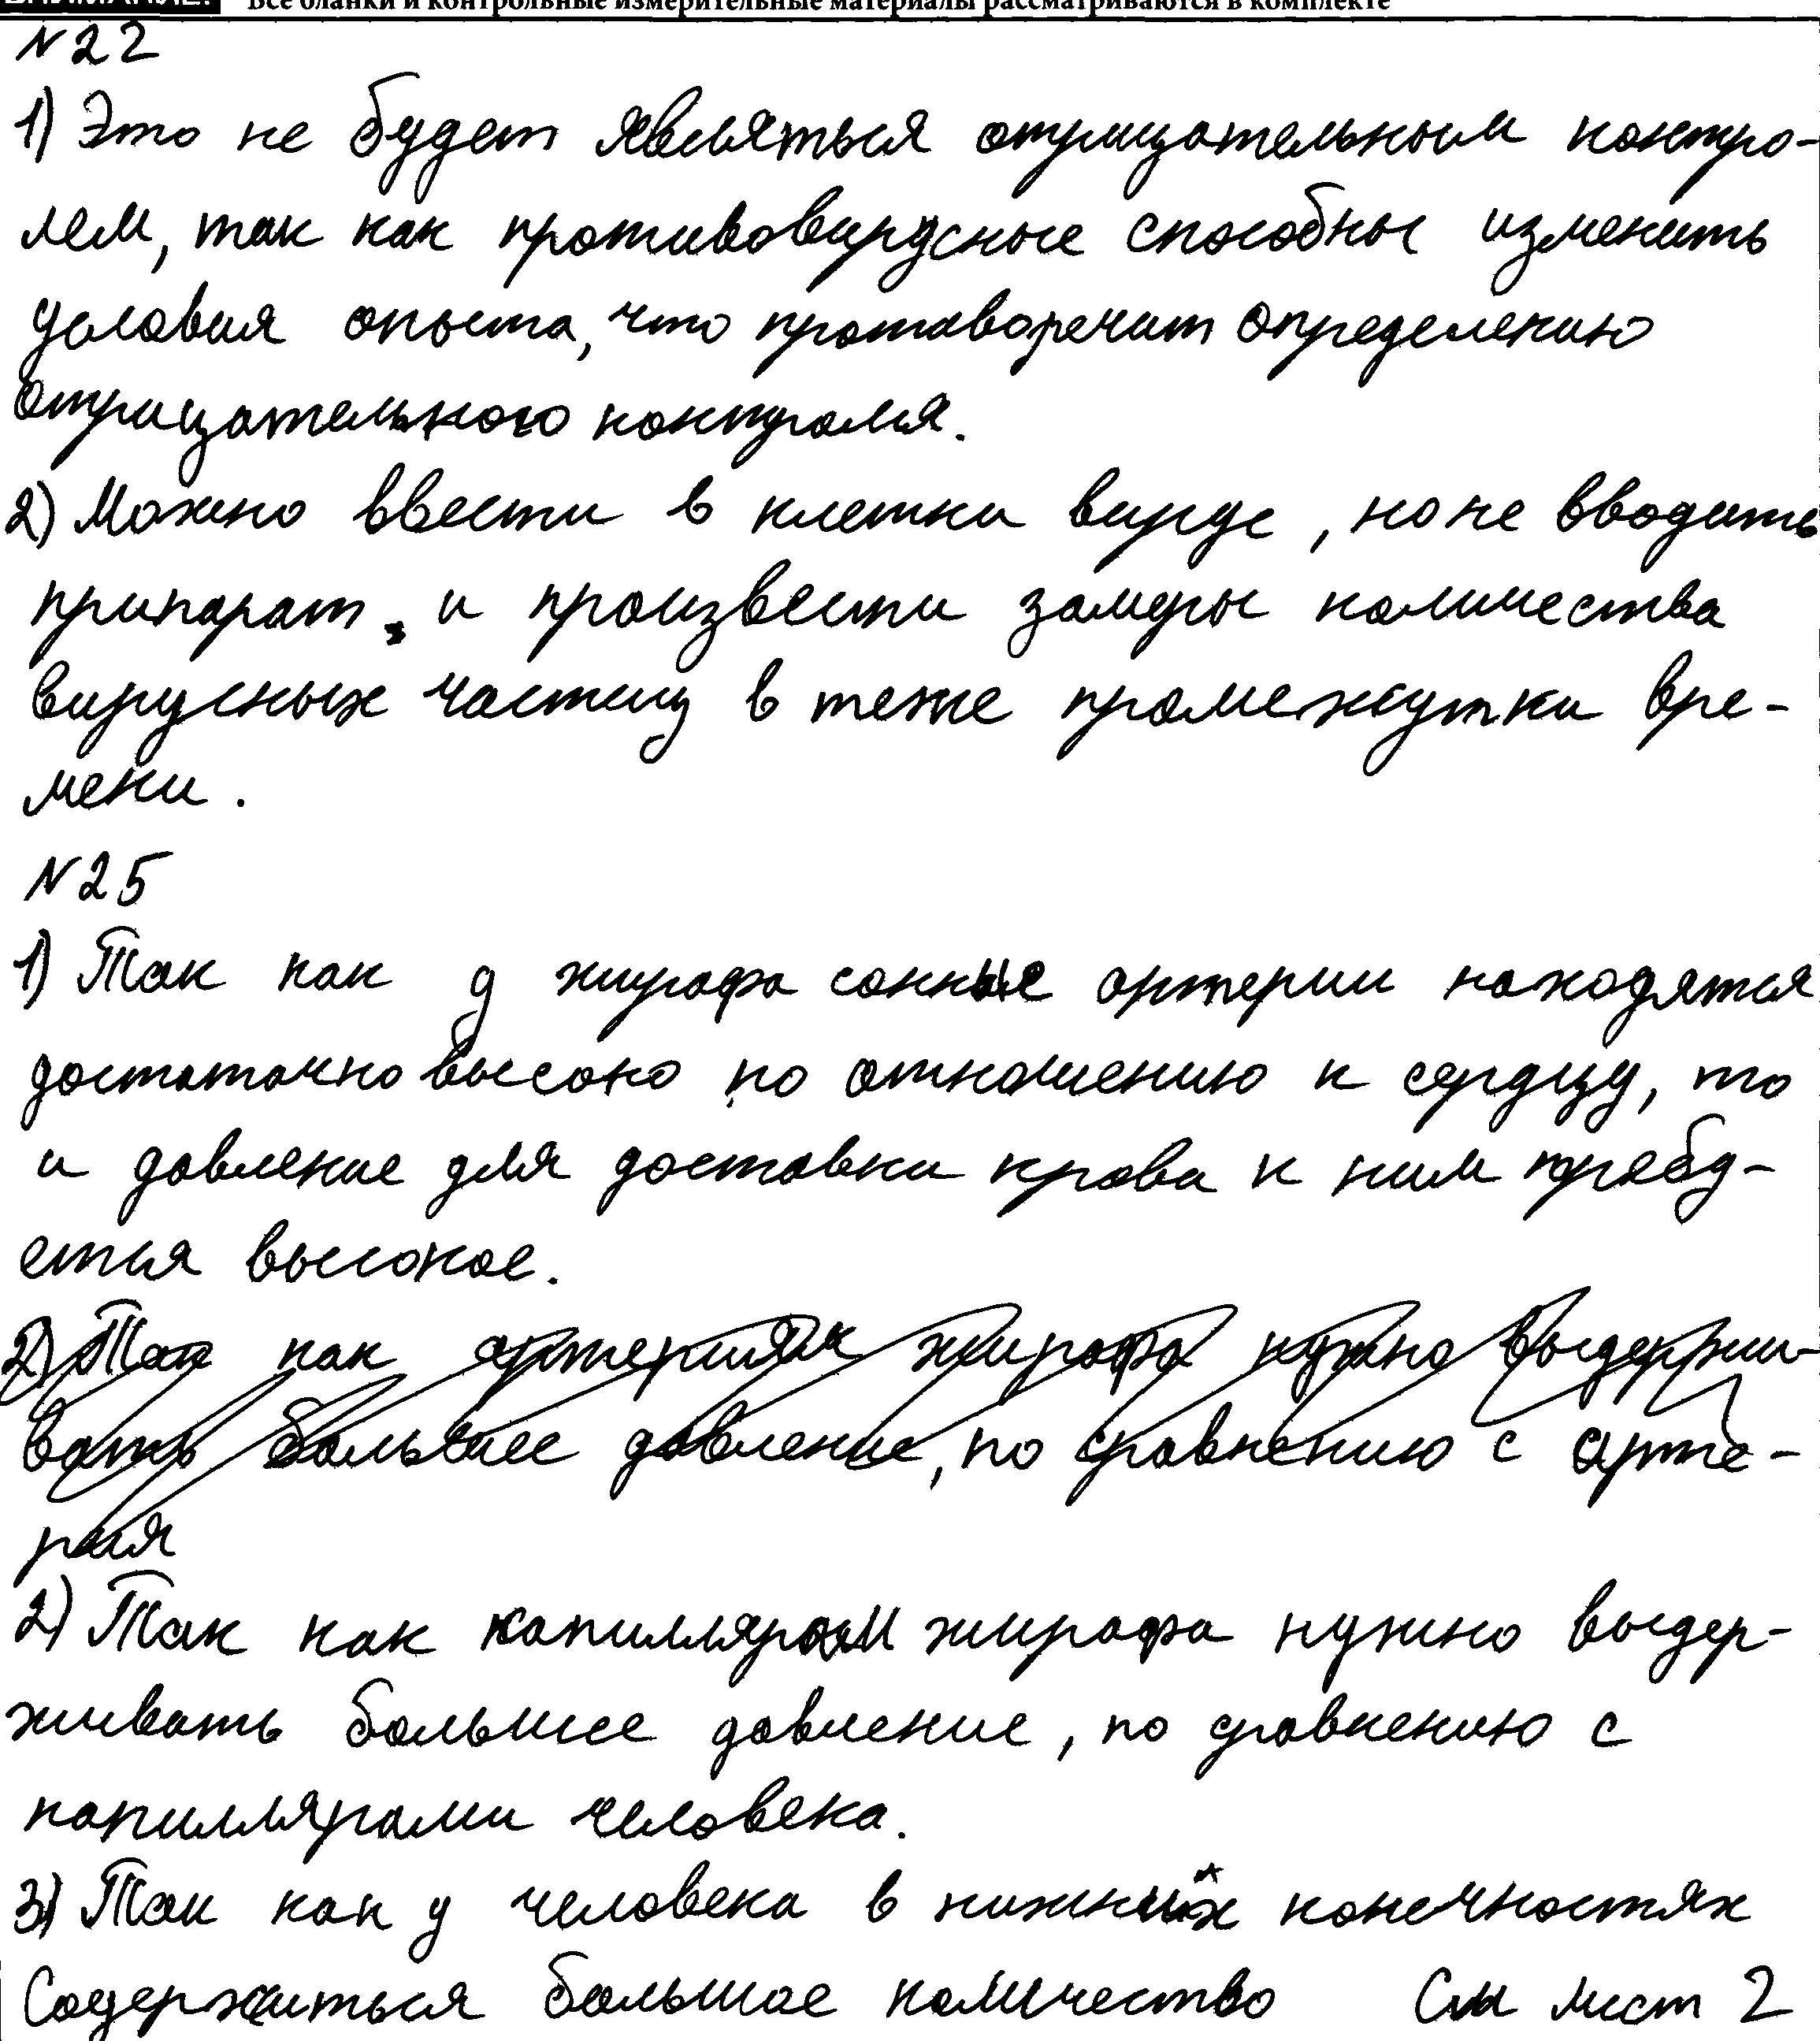 Все бланки и контрольные измерительные материалы рассматриваются в комплекте
№22
1) Это не будет являяться отрицательным контро-
лем, так как противовирусные способны изменить
условия опыта, что противоречит определению
отрицательного контроля.
2) Можно ввести в клетки вирус, но не вводить
припарат и произвести замеры количества
вирусных частиц в теже промежутки вре-
мени.
№25
1) Так как у жирафа сонные артерии находятся
достаточно высоко по отношению к сердцу, то
и давление для доставки крови к ним требу-
ется высокое.
2) Так как артериям жирафа нужно выдержи-
вать большее давление, по сравнению с арте-
рия
2) Так как капиллярам жирафа нужно выдер-
живать большее давление, по сравнению с
капиллярами человека.
3) Так как у человека в нижних конечностях
Содержиться большое количество См лист 2